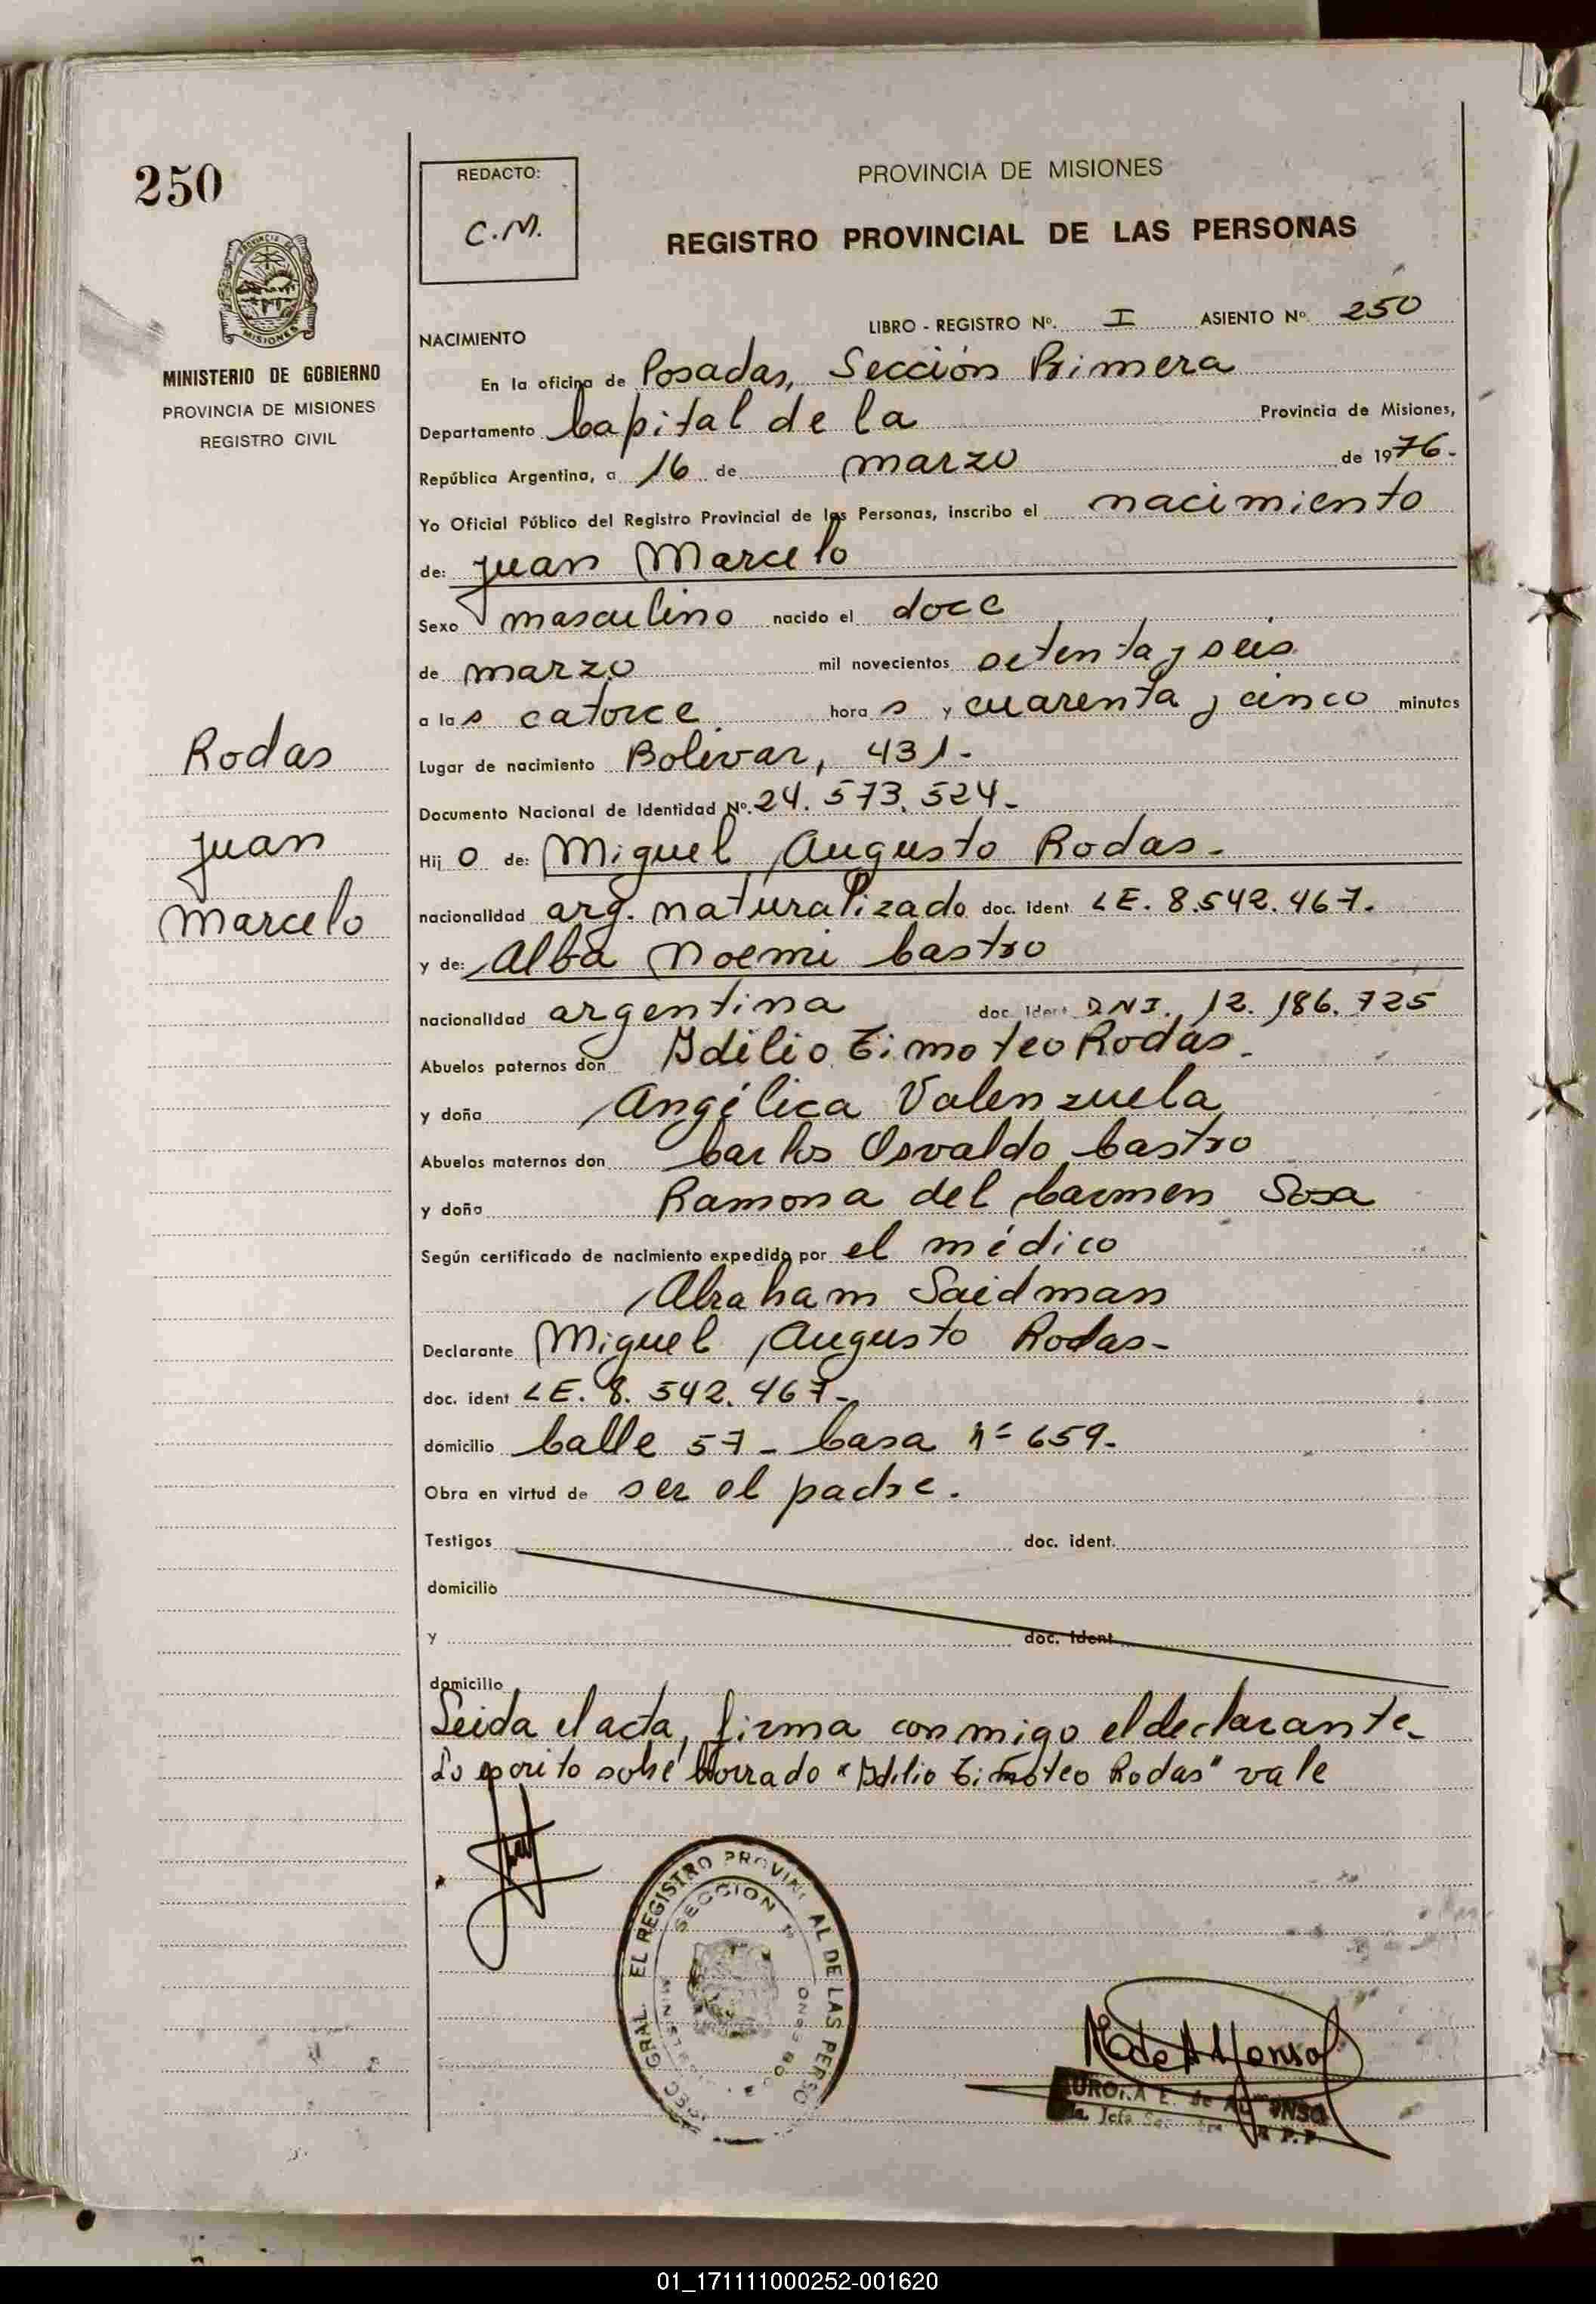 250
REDACTO:
C.M.
PROVINCIA DE MISIONES
REGISTRO PROVINCIAL DE LAS PERSONAS
PROVINCIA DE
MISIONES
MINISTERIO DE GOBIERNO
PROVINCIA DE MISIONES
REGISTRO CIVIL
NACIMIENTO
LIBRO - REGISTRO Nº. I ASIENTO Nº. 250
En la oficina de Posadas, Sección Primera
Departamento Capital de la Provincia de Misiones,
República Argentina, a 16 de marzo de 1976.-
Yo Oficial Público del Registro Provincial de las Personas, inscribo el nacimiento
de: Juan Marcelo
Sexo masculino nacido el doce
de marzo mil novecientos setenta y seis
a las catorce horas y cuarenta y cinco minutos
Rodas
Lugar de nacimiento Bolivar, 431.-
Documento Nacional de Identidad Nº. 24.573.524.-
Juan
Hijo de: Miguel Augusto Rodas.-
Marcelo
nacionalidad arg. naturalizado doc. ident. LE. 8.542.467.
y de: Alba Noemi Castro
nacionalidad argentina doc. ident. DNI. 12.186.725
Abuelos paternos don Idilio Timoteo Rodas.
y doña Angélica Valenzuela
Abuelos maternos don Carlos Osvaldo Castro
y doña Ramona del Carmen Sosa
Según certificado de nacimiento expedido por el médico
Abraham Saidman
Declarante Miguel Augusto Rodas-
doc. ident LE. 8.542.467.-
domicilio Calle 57 - Casa nº 659.
Obra en virtud de ser el padre.
Testigos doc. ident.
domicilio
y doc. ident.
domicilio
Leida el acta, firma conmigo el declarante.
Lo escrito sobre borrado "Idilio Timoteo Rodas" vale
GRAL. EL REGISTRO PROVINCIAL DE LAS PERSO
SECCION 1ª